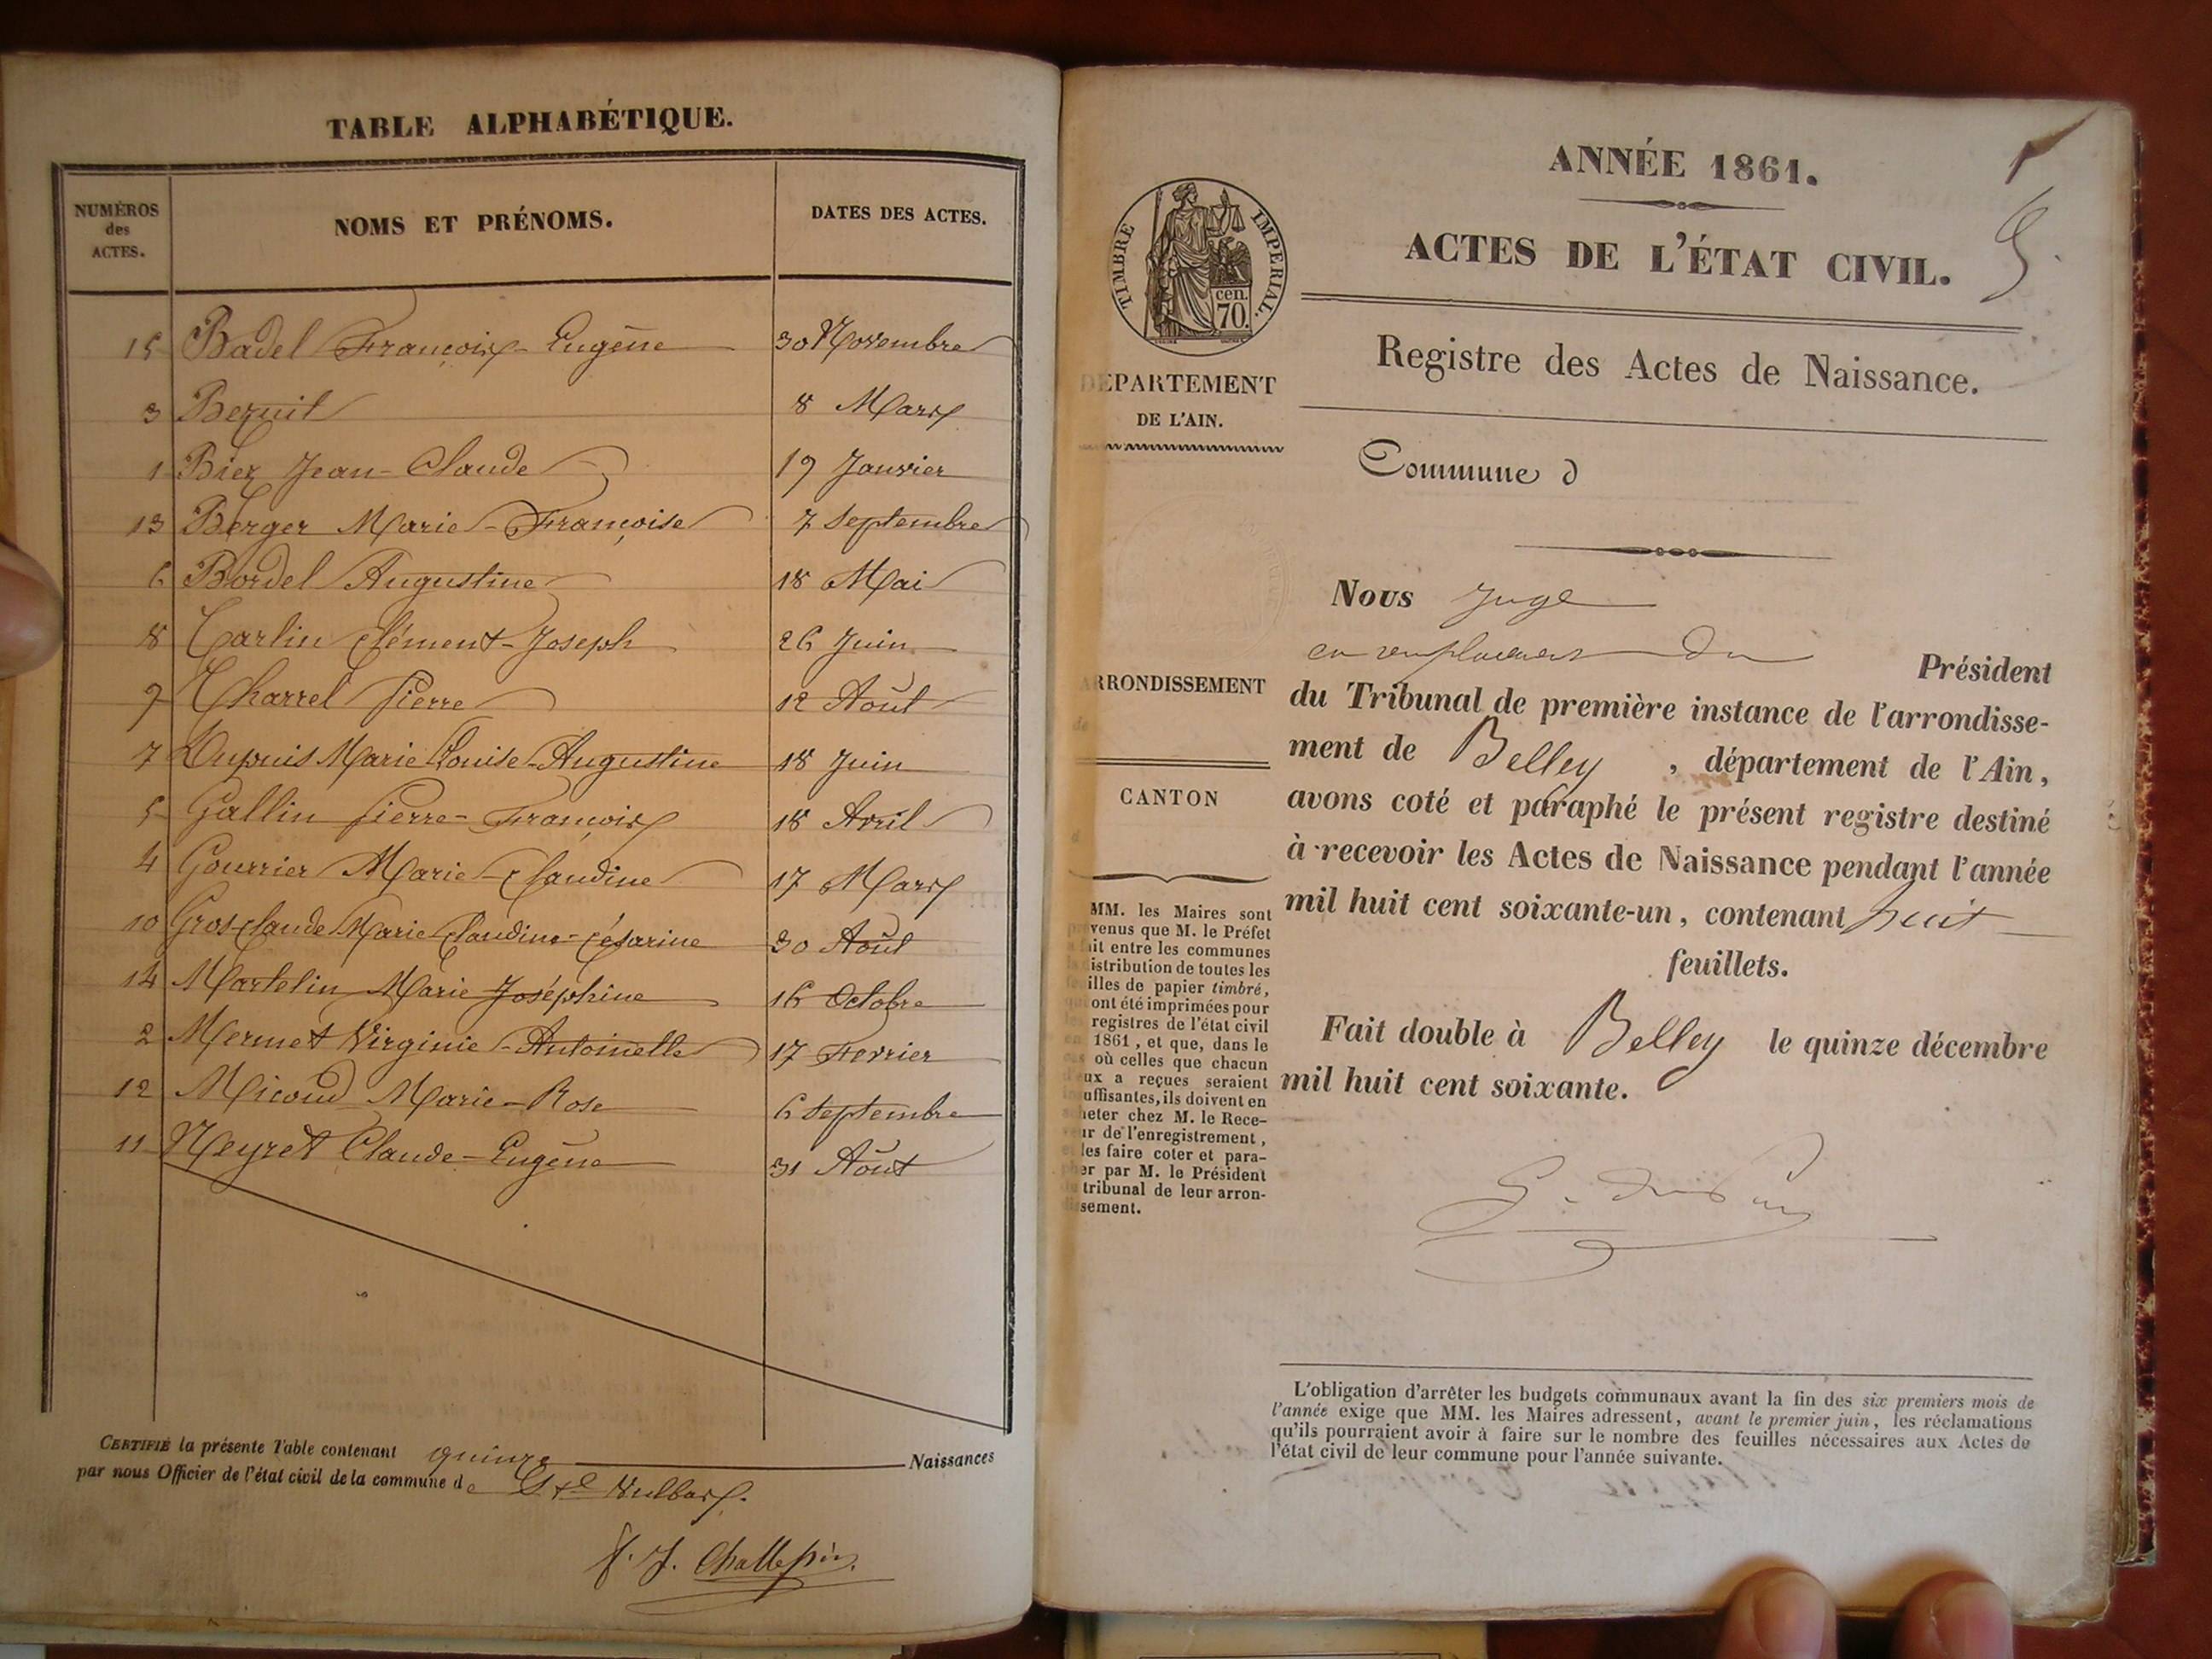 TABLE ALPHABÉTIQUE.
NUMÉROS des ACTES. NOMS ET PRÉNOMS. DATES DES ACTES.
15 Badel François-Eugène 30 Novembre
3 Bezuit 8 Mars
1 Biez Jean-Claude 19 Janvier
13 Berger Marie-Françoise 7 Septembre
6 Bordel Augustine 18 Mai
8 Carlin Clément-Joseph 26 Juin
9 Charrel Pierre 12 Août
7 Dupuis Marie Louise-Augustine 18 Juin
5 Gallin Pierre-François 18 Avril
4 Gourrier Marie-Claudine 17 Mars
10 Gros-Claude Marie Claudine-Césarine 30 Août
14 Martelin Marie Joséphine 16 Octobre
2 Mermet Virginie-Antoinette 17 Fevrier
12 Micoud Marie-Rose 6 Septembre
11 Neyret Claude-Eugène 31 Août
CERTIFIÉ la présente Table contenant quinze Naissances
par nous Officier de l'état civil de la commune de
ANNÉE 1861.
ACTES DE L'ÉTAT CIVIL.
TIMBRE IMPERIAL.
cen.
70.
Registre des Actes de Naissance.
DEPARTEMENT
DE L'AIN.
Commune d
Nous Juge
en remplacement du Président
ARRONDISSEMENT
de
du Tribunal de première instance de l'arrondisse-
ment de Belley, département de l'Ain,
CANTON
d
avons coté et paraphé le présent registre destiné
à recevoir les Actes de Naissance pendant l'année
mil huit cent soixante-un, contenant huit
feuillets.
Fait double à Belley le quinze décembre
mil huit cent soixante.
MM. les Maires sont
venus que M. le Préfet
ait entre les communes
istribution de toutes les
illes de papier timbré,
ont été imprimées pour
registres de l'état civil
1861, et que, dans le
où celles que chacun
ux a reçues seraient
uffisantes, ils doivent en
heter chez M. le Rece-
ur de l'enregistrement,
les faire coter et para-
er par M. le Président
tribunal de leur arron-
sement.
L'obligation d'arrêter les budgets communaux avant la fin des six premiers mois de
l'année exige que MM. les Maires adressent, avant le premier juin, les réclamations
qu'ils pourraient avoir à faire sur le nombre des feuilles nécessaires aux Actes de
l'état civil de leur commune pour l'année suivante.